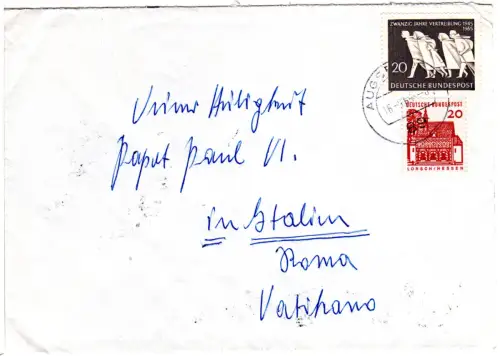 ZWANZIG JAHRE VERTREIBUNG 1945 1965
20
DEUTSCHE BUNDESPOST
DEUTSCHE BUNDESPOST
20
LORSCH/HESSEN
Seiner Heiligkeit
Papst Paul VI.
in Italien
Roma
Vatikano